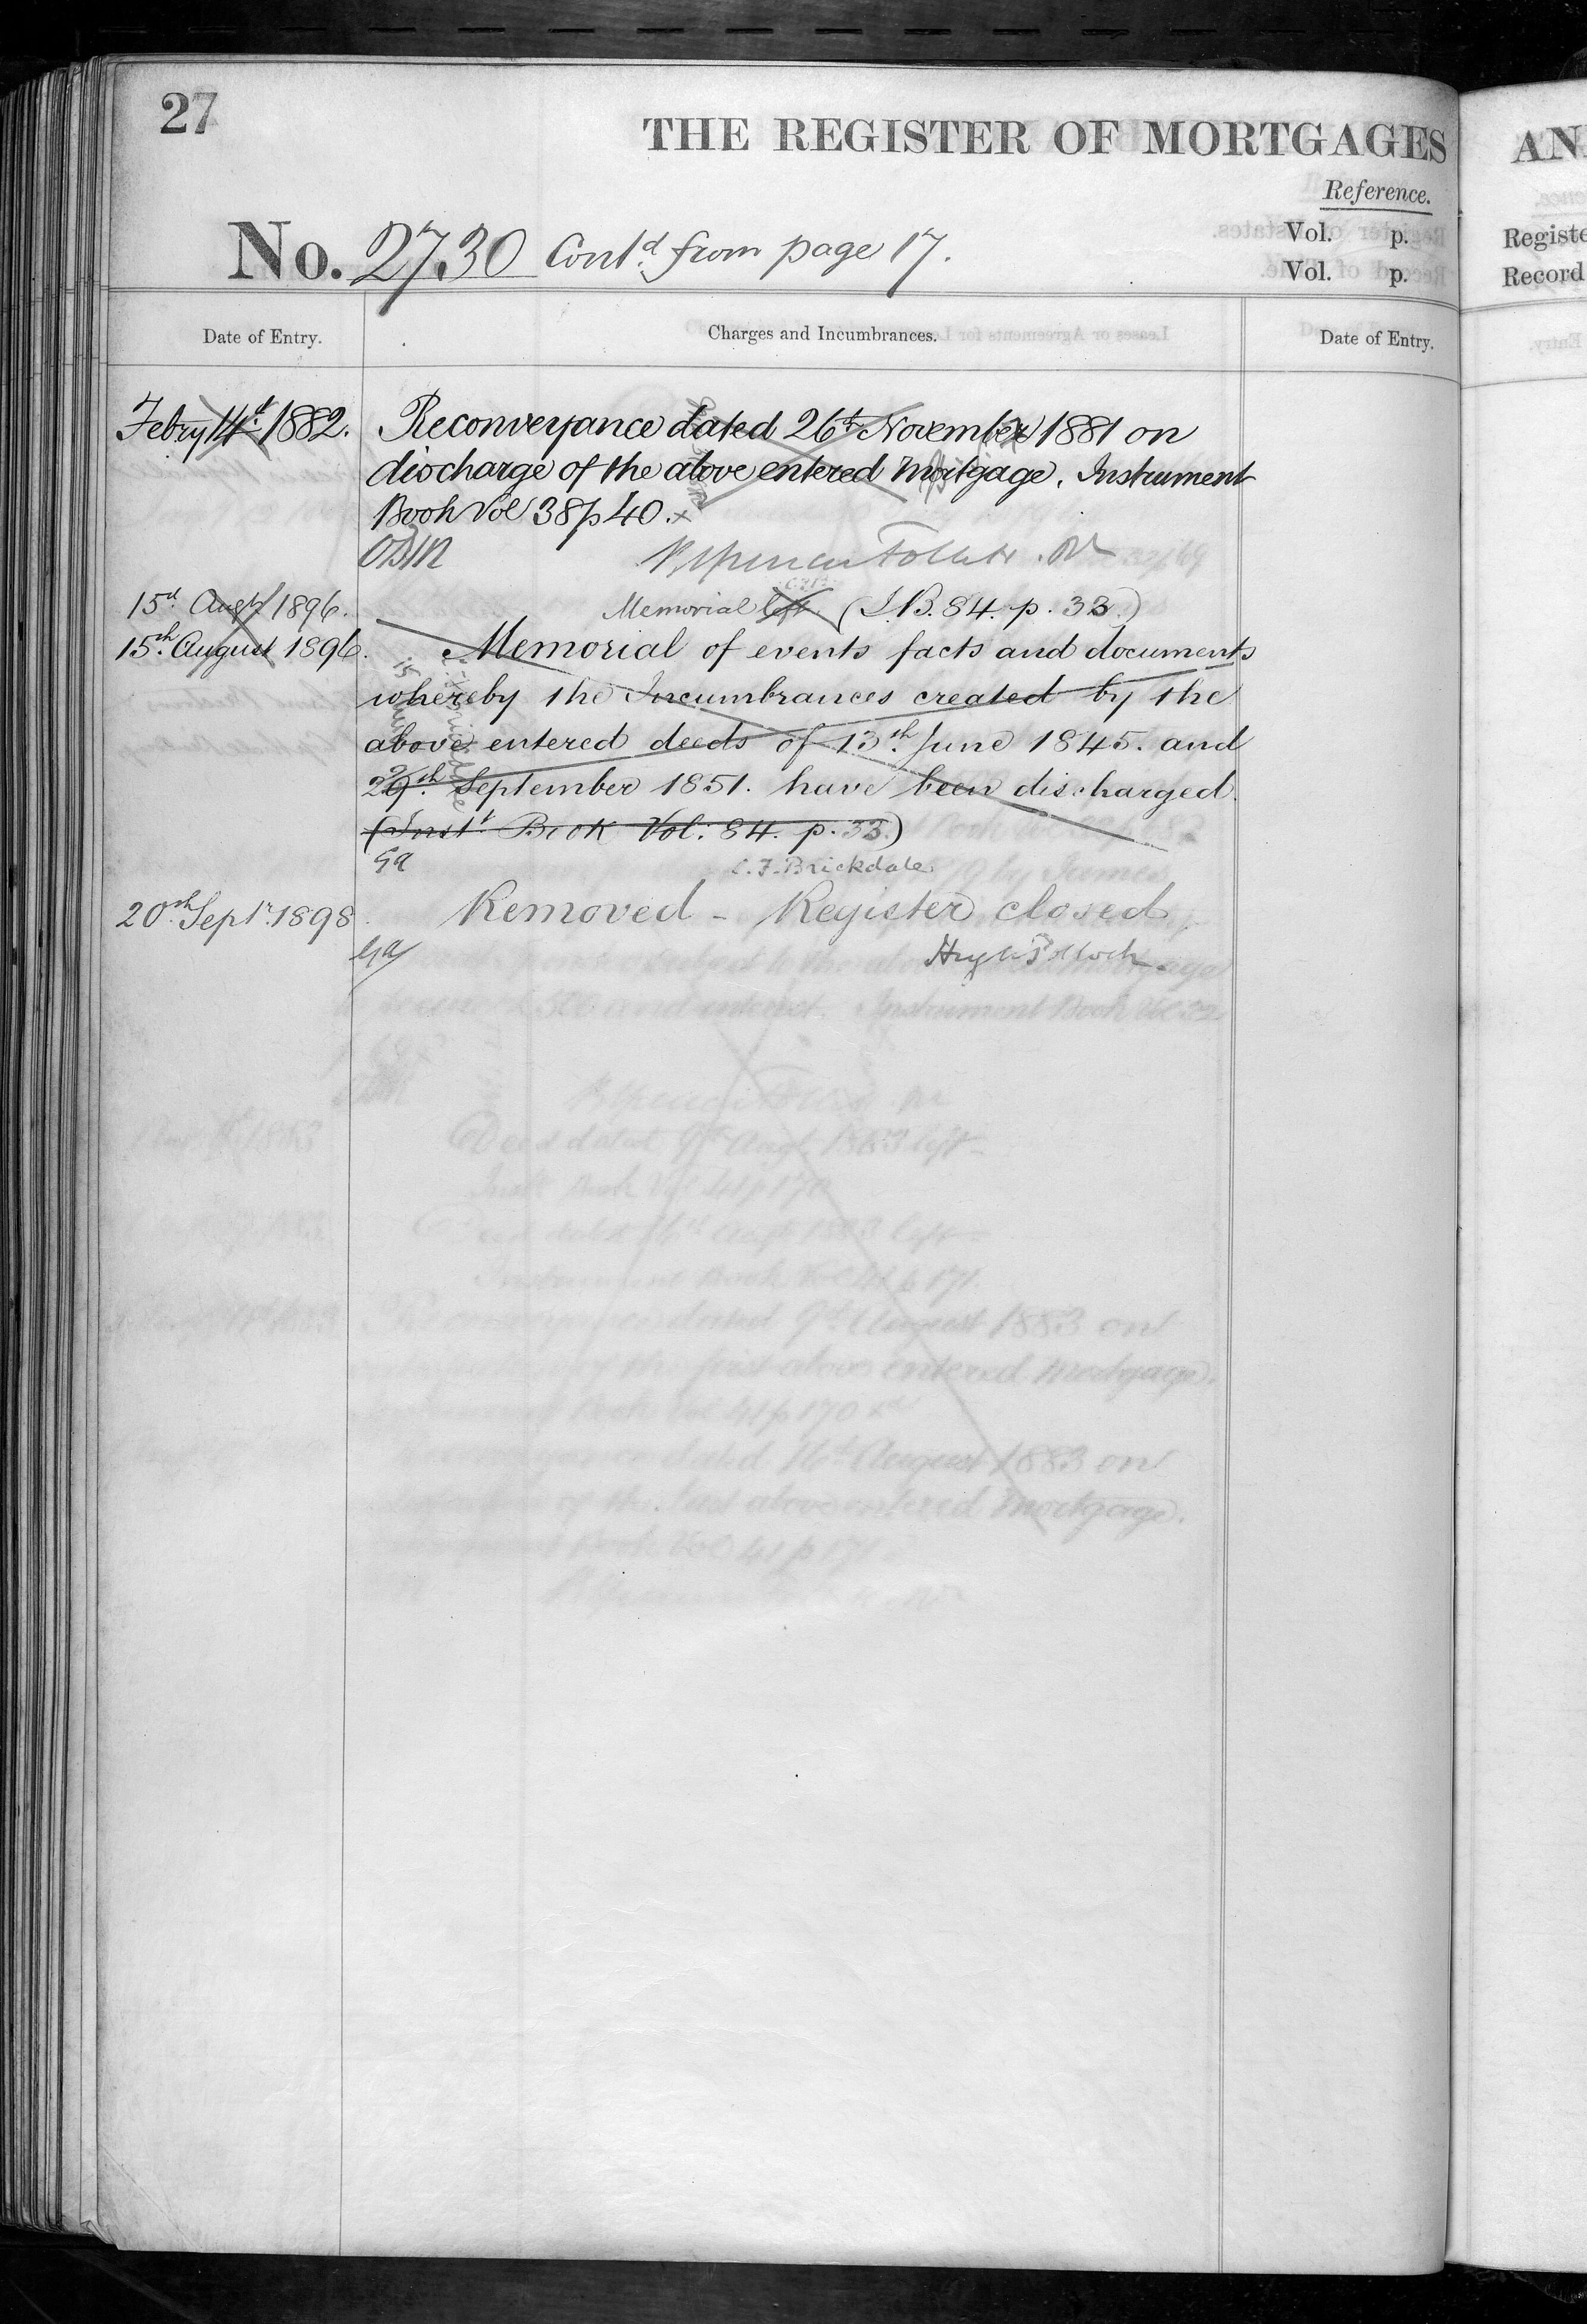 27
THE REGISTER OF MORTGAGES
AN
Reference.
Vol. p.
Vol. p.
Registe
Record
No. 27.30 Contd from page 17.
Date of Entry.
Charges and Incumbrances.
Date of Entry.
Febry 14th 1882.
Reconveyance dated 26th November 1881 on
discharge of the above entered Mortgage. Instrument
Book Vol 38 p 40. x
R Spencer Follett
15th Augt 1896.
Memorial left (I.B. 84. p. 33.)
15th August 1896.
Memorial of events facts and documents
whereby the Incumbrances created by the
above entered deeds of 13th June 1845. and
29th September 1851. have been discharged.
(Inst Book Vol: 84. p. 33.)
Ga
C. F. Brickdale
20th Septr 1898
Removed - Register closed
Ga
Hugh Pollock